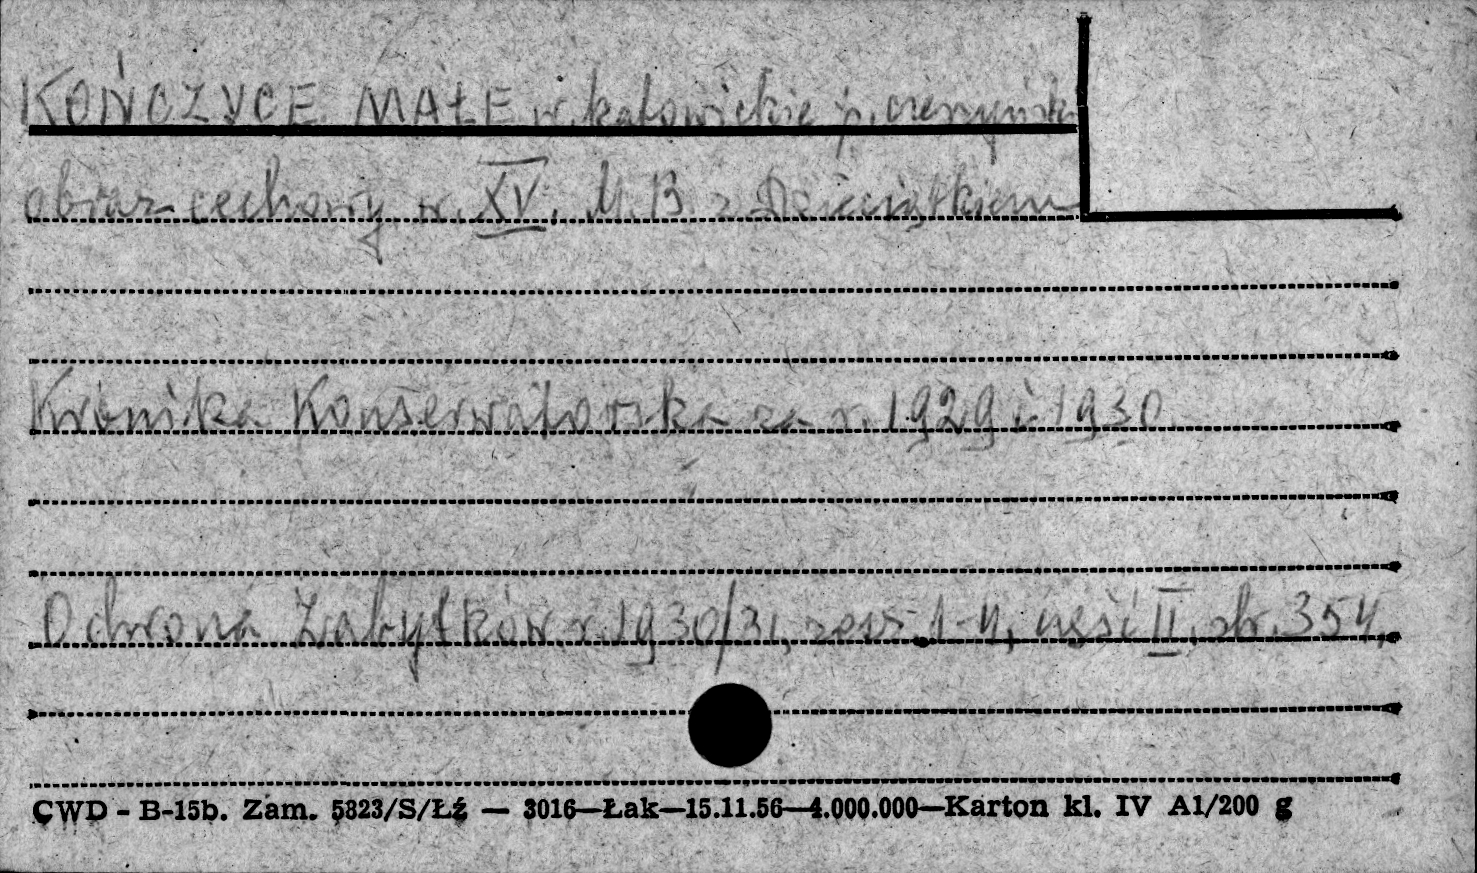 KOŃCZYCE MAŁE w. katowickie p. cieszyński
obraz cechowy w. XV. M. B. z Dzieciątkiem
Kronika Konserwatorska za r. 1929 i 1930
Ochrona Zabytków r. 1930/31, zesz. 1-4, część II, str. 354,
CWD - B-15b. Zam. 5323/S/Łź — 3016—Łak—15.11.56—4.000.000—Karton kl. IV A1/200 g